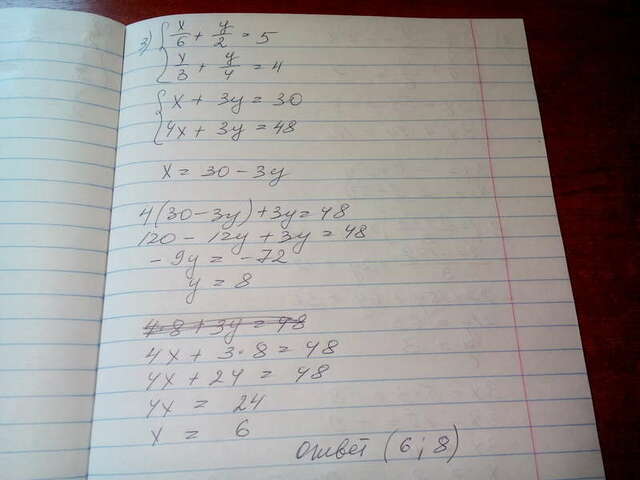 3) { x/6 + y/2 = 5
x/3 + y/4 = 4
{ x + 3y = 30
4x + 3y = 48
x = 30 - 3y
4(30 - 3y) + 3y = 48
120 - 12y + 3y = 48
- 9y = - 72
y = 8
4·8 + 3y = 48
4x + 3·8 = 48
4x + 24 = 48
4x = 24
x = 6
ответ (6; 8)